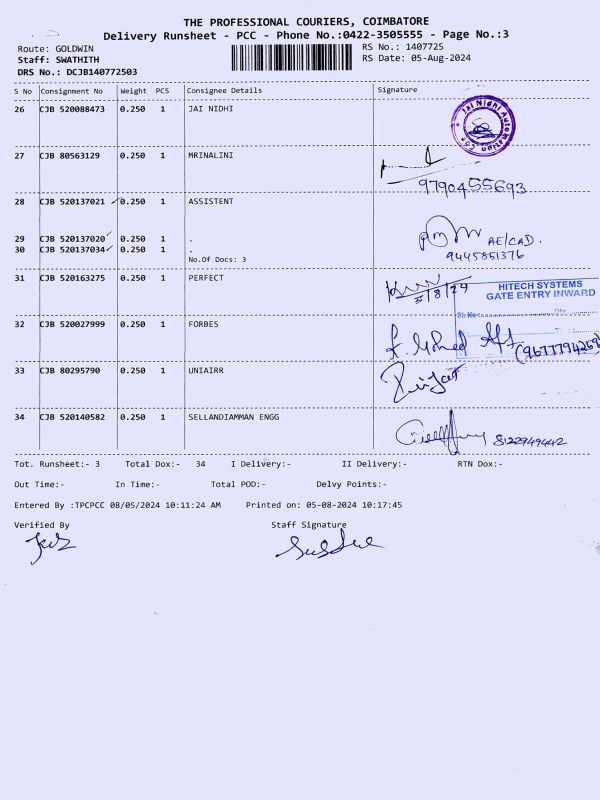 THE PROFESSIONAL COURIERS, COIMBATORE
Delivery Runsheet - PCC - Phone No.:0422-3505555 - Page No.:3
Route: GOLDWIN
RS No.: 1407725
Staff: SWATHITH
RS Date: 05-Aug-2024
DRS No.: DCJB140772503
S No Consignment No Weight PCS Consignee Details Signature
26 CJB 520088473 0.250 1 JAI NIDHI
Jai Nidhi Automation
27 CJB 80563129 0.250 1 MRINALINI
9790455693
28 CJB 520137021 0.250 1 ASSISTENT
29 CJB 520137020 0.250 1 . AE/CAD.
30 CJB 520137034 0.250 1 . 9445851376
No.Of Docs: 3
31 CJB 520163275 0.250 1 PERFECT
5/8/24
HITECH SYSTEMS
GATE ENTRY INWARD
Sl. No
32 CJB 520027999 0.250 1 FORBES
(9677794259)
33 CJB 80295790 0.250 1 UNIAIRR
34 CJB 520140582 0.250 1 SELLANDIAMMAN ENGG
8122949442
Tot. Runsheet:- 3 Total Dox:- 34 I Delivery:- II Delivery:- RTN Dox:-
Out Time:- In Time:- Total POD:- Delvy Points:-
Entered By :TPCPCC 08/05/2024 10:11:24 AM Printed on: 05-08-2024 10:17:45
Verified By Staff Signature